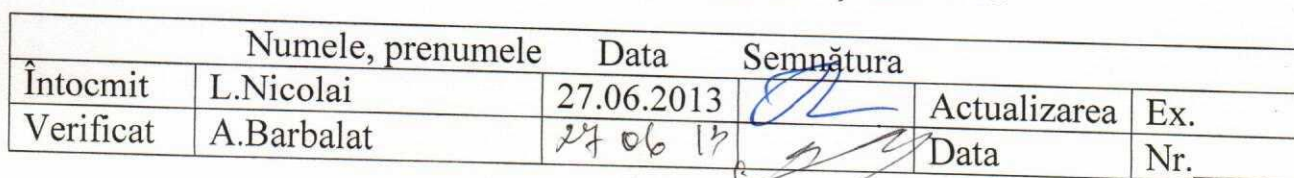 Numele, prenumele Data Semnătura
Întocmit L.Nicolai 27.06.2013 Actualizarea Ex.
Verificat A.Barbalat 27 06 13 Data Nr.